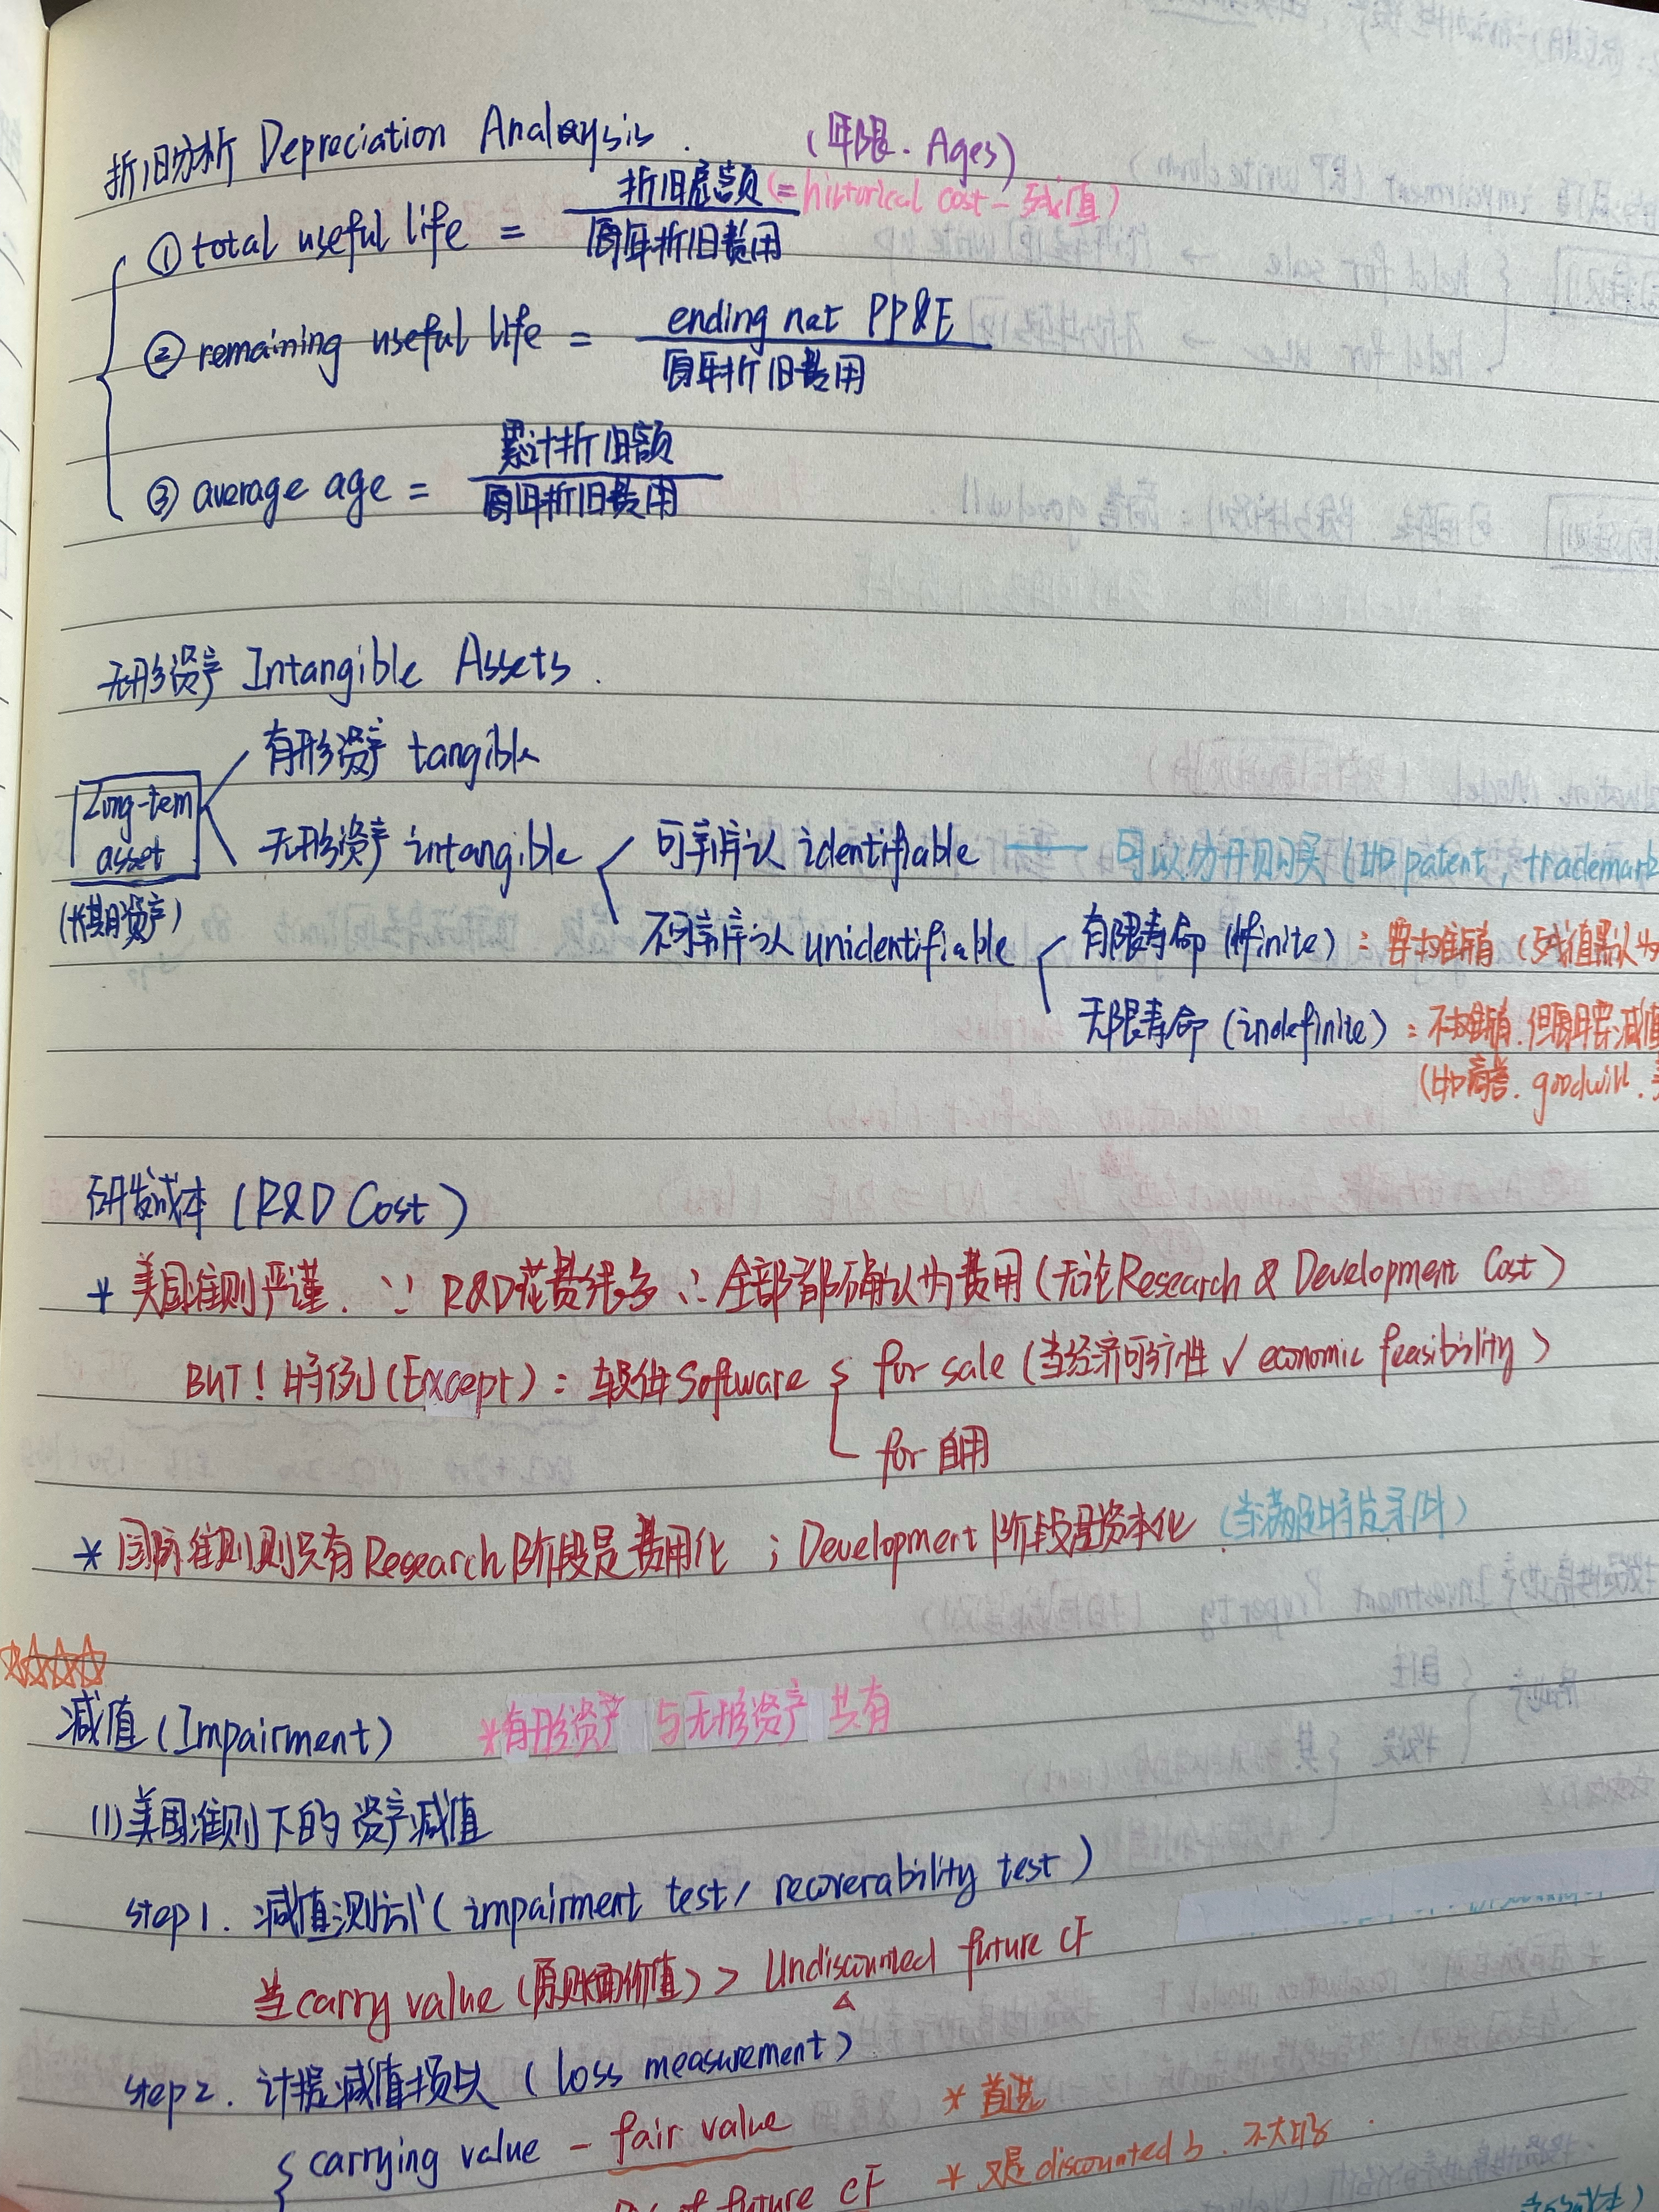 折旧分析 Depreciation Analaysis. (年限. Ages)
① total useful life = 折旧总额 (= historical cost - 残值) / 每年折旧费用
② remaining useful life = ending net PP&E / 每年折旧费用
③ average age = 累计折旧额 / 每年折旧费用
无形资产 Intangible Assets.
有形资产 tangible
Long-tem asset
(长期资产)
无形资产 intangible
可辨认 identifiable — 可以分开购买 (如 patent, trademark
不可辨认 unidentifiable
有限寿命 (finite): 要摊销 (残值默认为
无限寿命 (indefinite): 不摊销. 但要减值
(如商誉. goodwill.
研发成本 (R&D Cost)
* 美国准则严谨. ∵ R&D花费很多 ∴ 全部都确认为费用 (无论Research & Development Cost)
BUT! 特例 (Except): 软件 Software { for sale (当经济可行性 √ economic feasibility)
for 自用
* 国际准则则只有Research阶段是费用化; Development阶段是资本化 (当满足时发条件)
☆☆☆☆
减值 (Impairment) *有形资产与无形资产共有
(1) 美国准则下的资产减值
step 1. 减值测试 (impairment test/ recoverability test)
当carry value (原账面价值) > Undiscounted future CF
step 2. 计提减值损失 (loss measurement)
{ carrying value - fair value * 首选
of future CF * 又是discounted